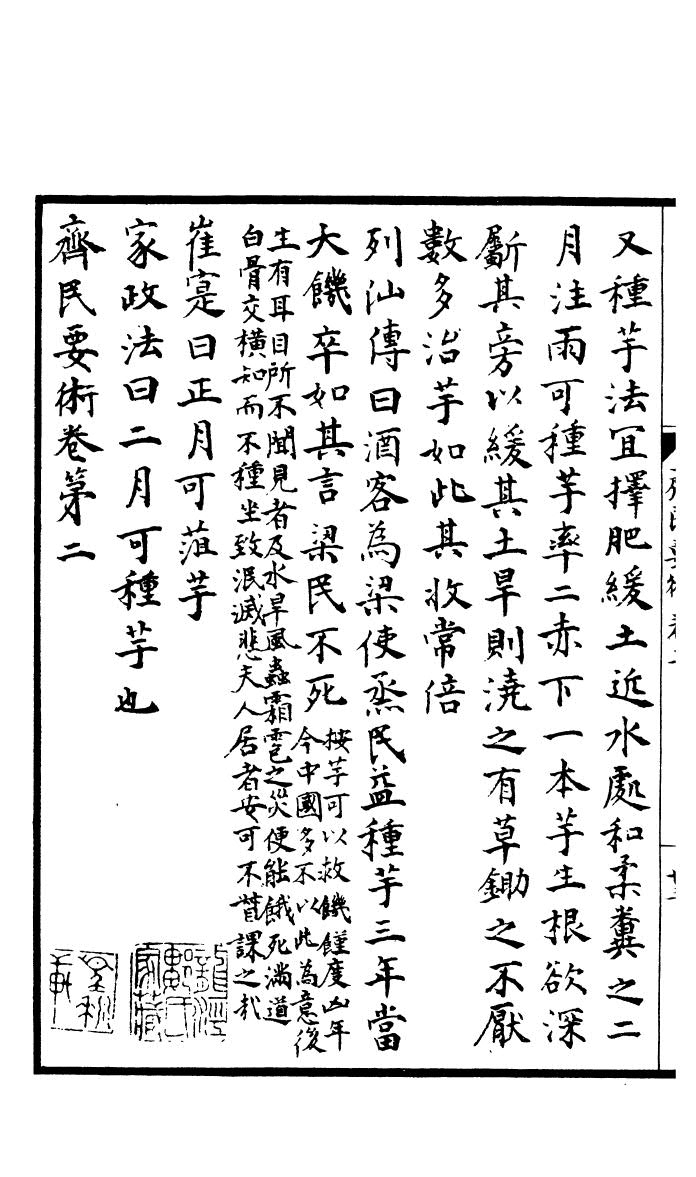 又種芋法冝擇肥緩土近水處和柔糞之二
月注雨可種芋率二赤下一本芋生根欲深
斸其旁以緩其土旱則澆之有草鋤之不厭
數多治芋如此其收常倍
列仙傳曰酒客為梁使烝民益種芋三年當
大饑卒如其言梁民不死
按芋可以救饑饉度凶年
今中國多不以此為意後
生有耳目所不聞見者及水旱風蟲霜雹之災便能餓死滿道
白骨交橫知而不種坐致泯滅悲夫人居者安可不督課之㢤
崔寔曰正月可菹芋
家政法曰二月可種芋也
齊民要術卷第二